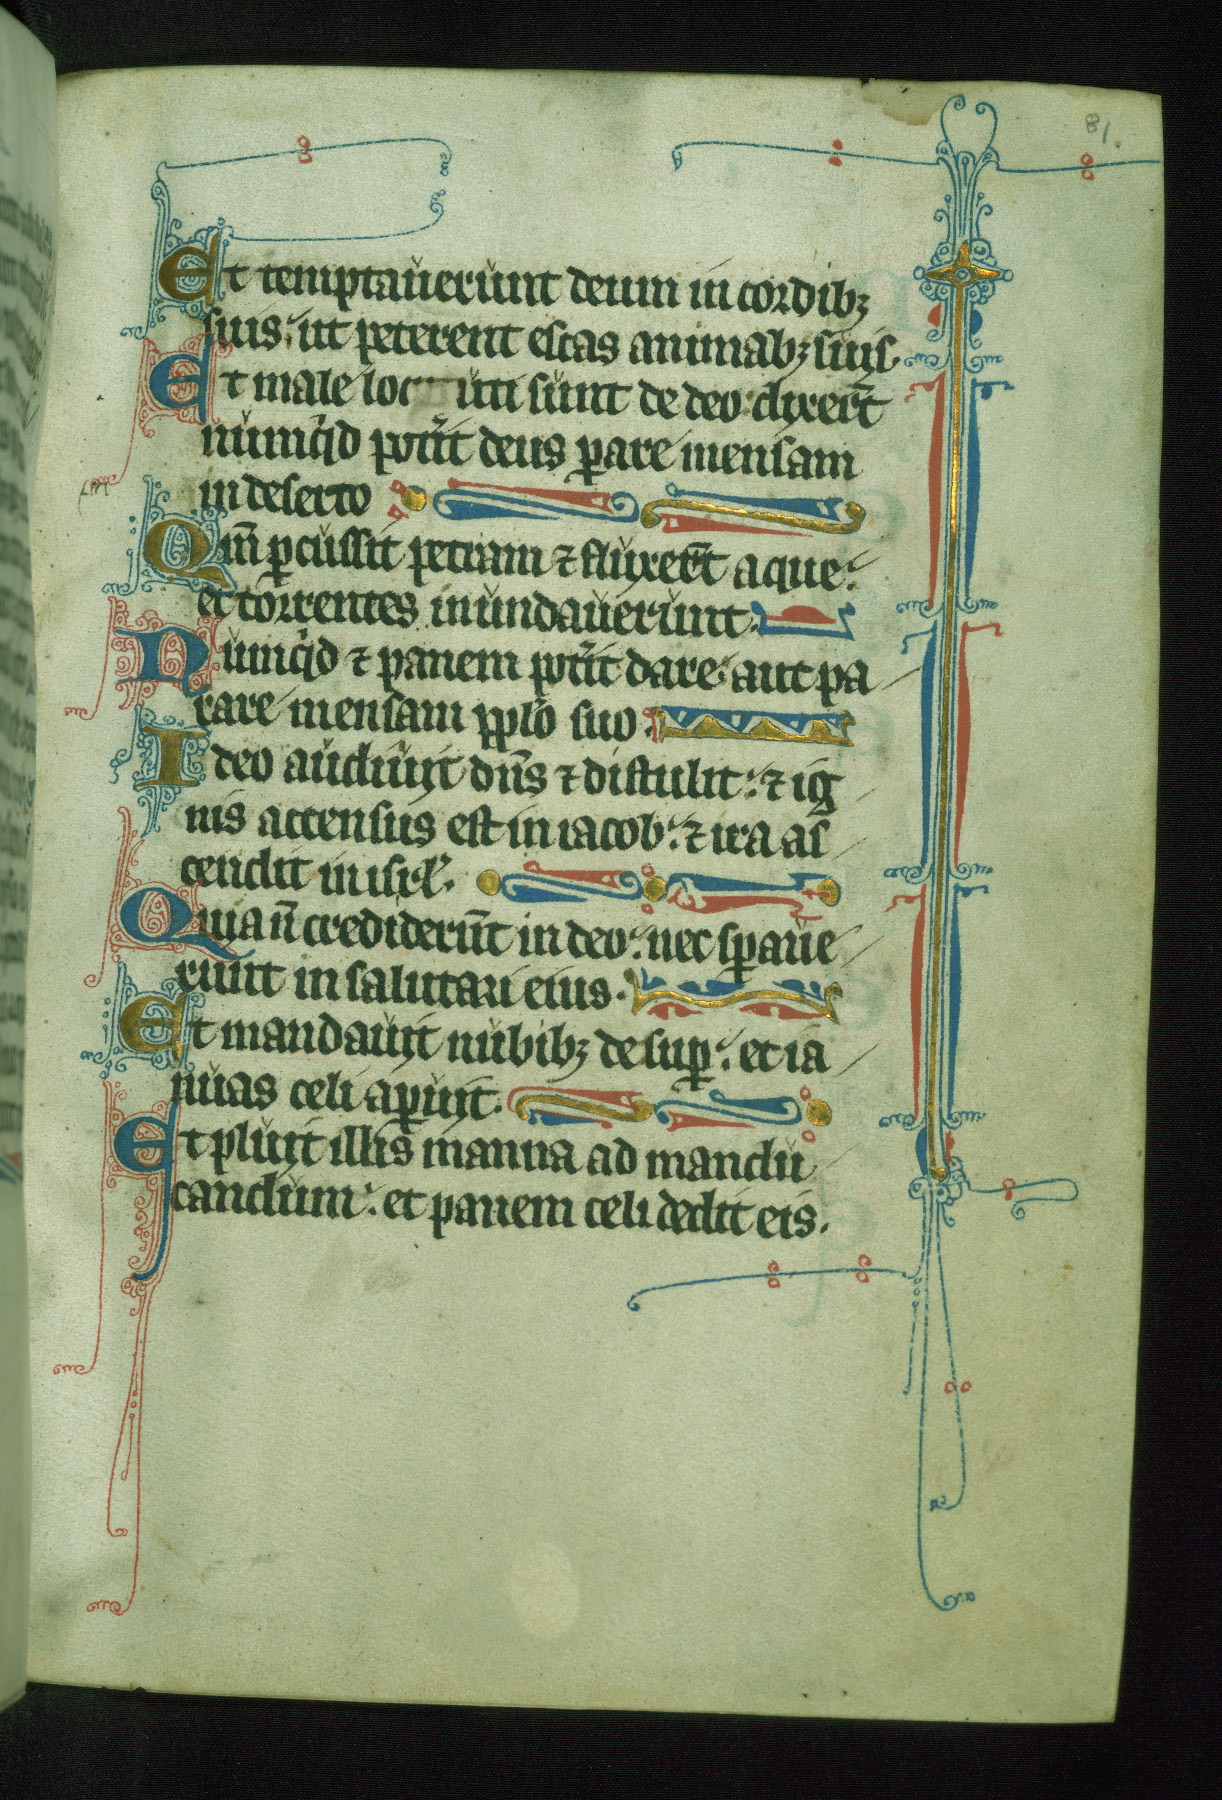 81.
Et temptauerunt deum in cordibꝫ
suis: ut peterent escas animabꝫ suis.
Et male loc uti sunt de deo dixer̃t
nũq̾d pot̾it deus ꝑare mensam
in deserto
Qm̃ ꝑcussit petram ⁊ fluxer̃t aque:
et torrentes inundauerunt.
Nunq̾d ⁊ panem pot̾it dare: aut pa
rare mensam pplo̅ suo.
Ideo audiuit dñs ⁊ distulit: ⁊ ig
nis accensus est in iacob: ⁊ ira as
cendit in isrl̃.
Quia ñ crediderũt in deo: nec sꝑaue
runt in salutari eius.
Et mandauit nubibꝫ desuꝑ: et ia
nuas celi aꝑuit.
Et pluit illis manna ad mandu
candum: et panem celi dedit eis.